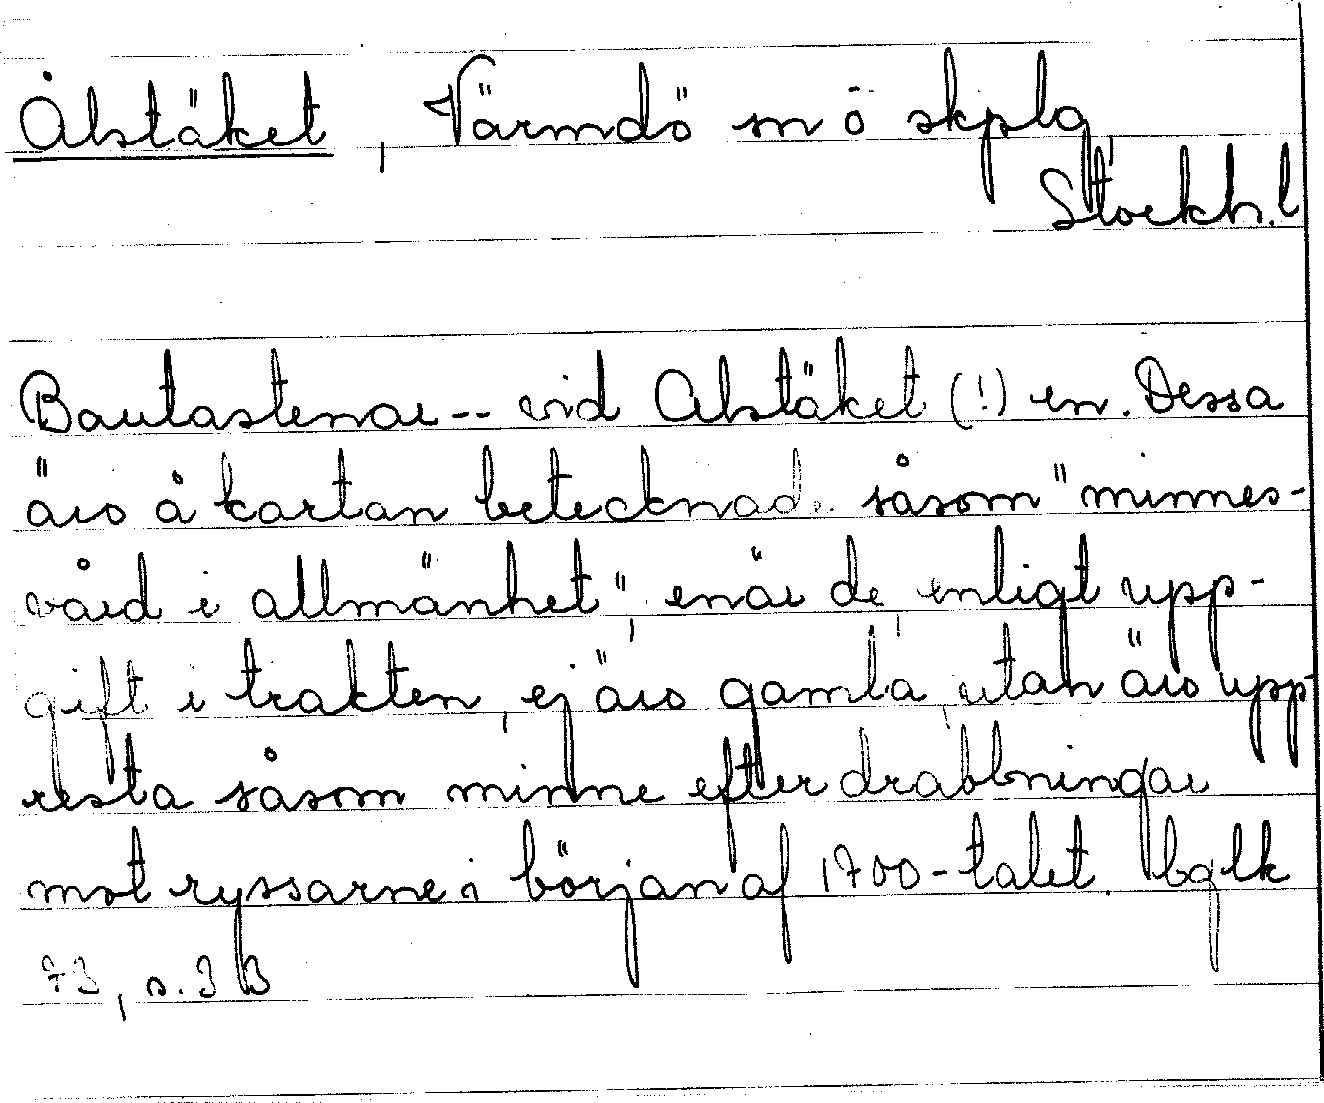 Ålstäket, Värmdö sn ö skplg,
Stockh. l
Bautastenar -- vid Alstäket (!) en. Dessa
äro å kartan betecknade såsom "minnes-
vård i allmänhet", enär de, enligt upp-
gift i trakten, ej äro gamla, utan äro upp-
resta såsom minne efter drabbningar
mot ryssarne i början af 1700-talet. bglk
73, s. 3 B